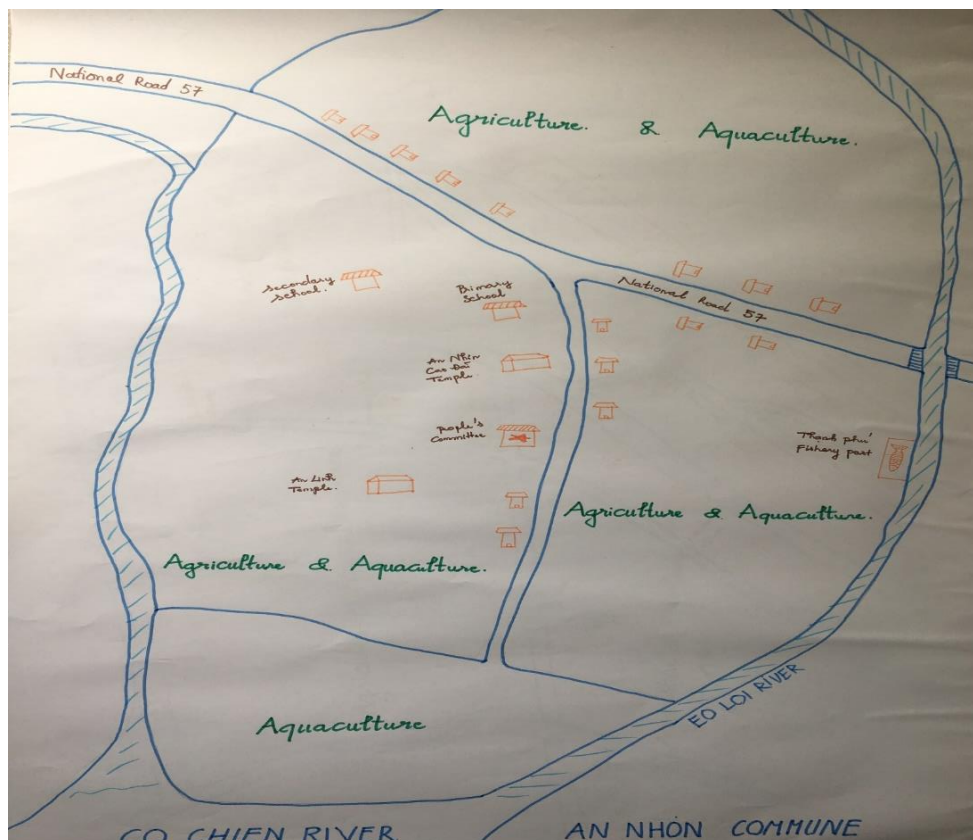 National Road 57
Agriculture. & Aquaculture.
Secondary
School.
Primary
School
National Road 57
An Nhơn
Cao Đài
Temple.
People's
Committee
Thạnh phú
Fishery port
An Linh
Temple.
Agriculture & Aquaculture.
Agriculture & Aquaculture.
Aquaculture
EO LOI RIVER
CO CHIEN RIVER
AN NHƠN COMMUNE